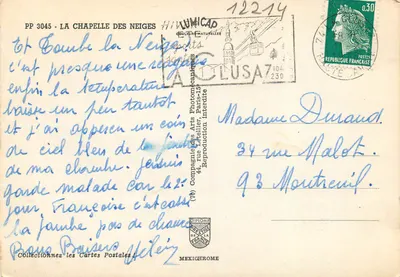 PP 3045 - LA CHAPELLE DES NEIGES
LUMICAP
12214
LA CLUSAZ
0,30
POSTES
REPUBLIQUE FRANÇAISE
Et Tombe la Neige !
c'est presque une rengaine
enfin la température
baisse un peu tantot
et j'ai apperçu un coin
de ciel bleu de la fenêtre
de ma chambre. Je suis
garde malade car le 2e
jour Françoise s'est cassé
la jambe pas de chance
Bons Baisers
Hélène
Compagnie des Arts Photomécaniques
44, rue Letellier, Paris-15e
Reproduction interdite
Madame Durand
34 rue Malot
93 Montreuil
Collectionnez les Cartes Postales
MEXICHROME